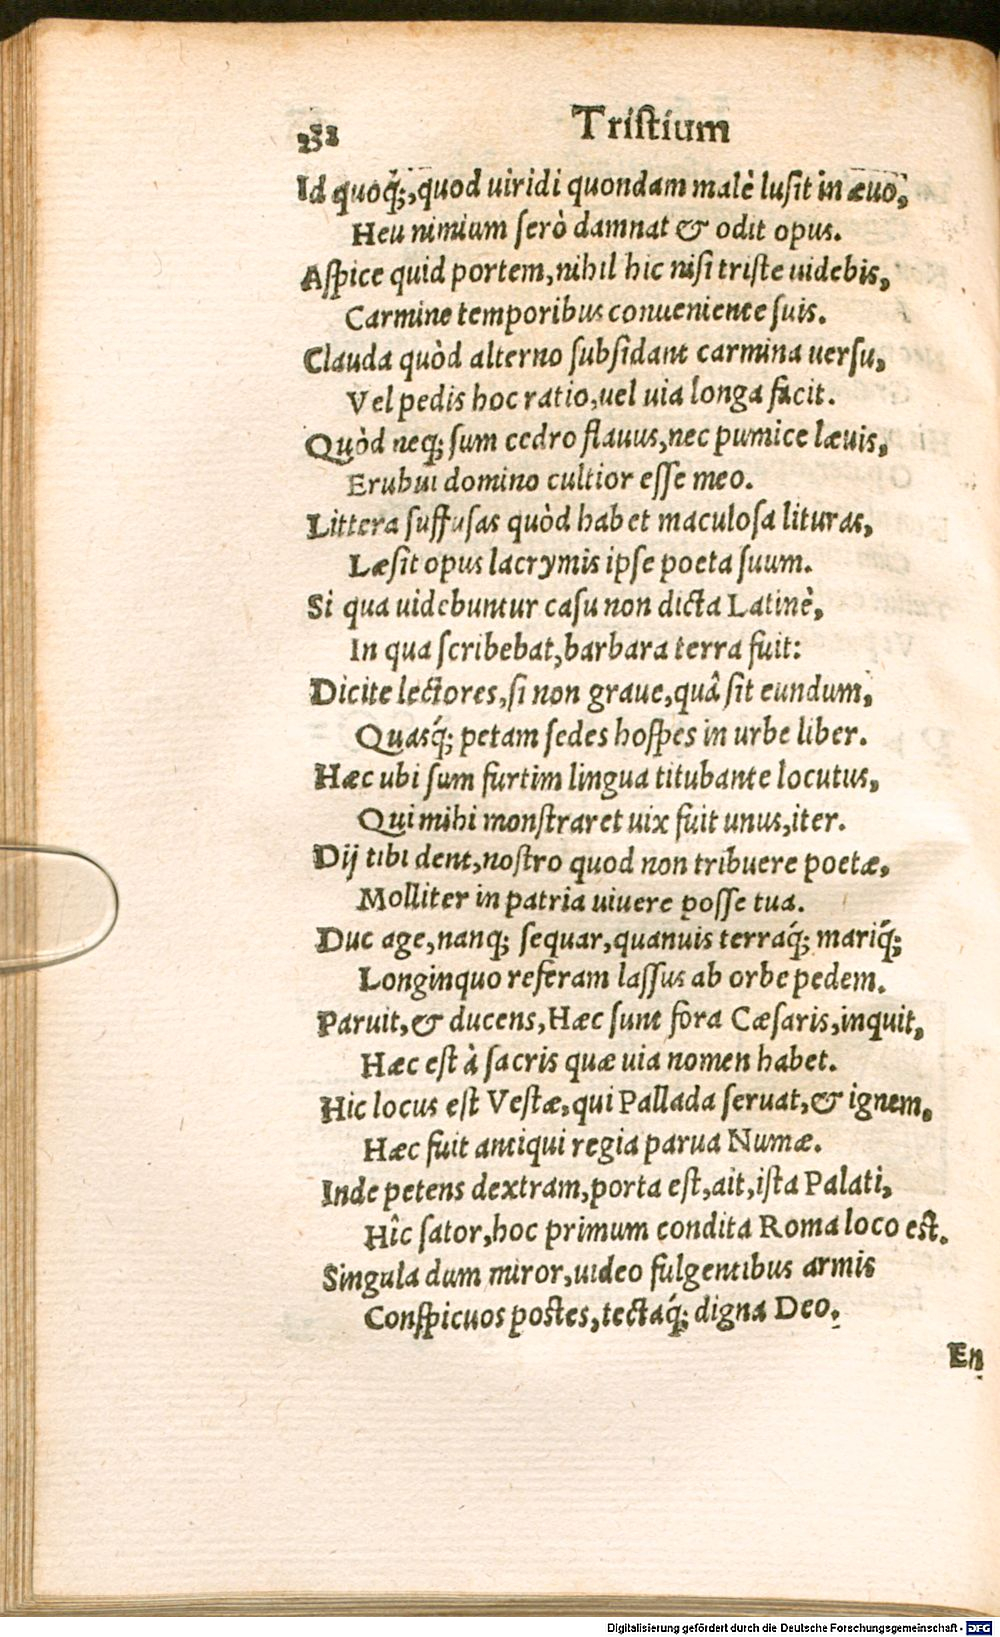 252 Tristium
Id quoq́;, quod uiridi quondam malè lusit in æuo,
Heu nimium serò damnat & odit opus.
Aspice quid portem, nihil hic nisi triste uidebis,
Carmine temporibus conueniente suis.
Clauda quòd alterno subsidant carmina uersu,
Vel pedis hoc ratio, uel uia longa facit.
Quòd neq; sum cedro flauus, nec pumice læuis,
Erubui domino cultior esse meo.
Littera suffusas quòd habet maculosa lituras,
Læsit opus lacrymis ipse poeta suum.
Si qua uidebuntur casu non dicta Latinè,
In qua scribebat, barbara terra fuit:
Dicite lectores, si non graue, quâ sit eundum,
Quasq́; petam sedes hospes in urbe liber.
Hæc ubi sum furtim lingua titubante locutus,
Qui mihi monstraret uix fuit unus, iter.
Dij tibi dent, nostro quod non tribuere poetæ,
Molliter in patria uiuere posse tua.
Duc age, nanq; sequar, quanuis terraq́; mariq́;
Longinquo referam lassus ab orbe pedem.
Paruit, & ducens, Hæc sunt fora Cæsaris, inquit,
Hæc est à sacris quæ uia nomen habet.
Hic locus est Vestæ, qui Pallada seruat, & ignem,
Hæc fuit antiqui regia parua Numæ.
Inde petens dextram, porta est, ait, ista Palati,
Hîc sator, hoc primum condita Roma loco est.
Singula dum miror, uideo fulgentibus armis
Conspicuos postes, tectaq́; digna Deo.
En
Digitalisierung gefördert durch die Deutsche Forschungsgemeinschaft - DFG